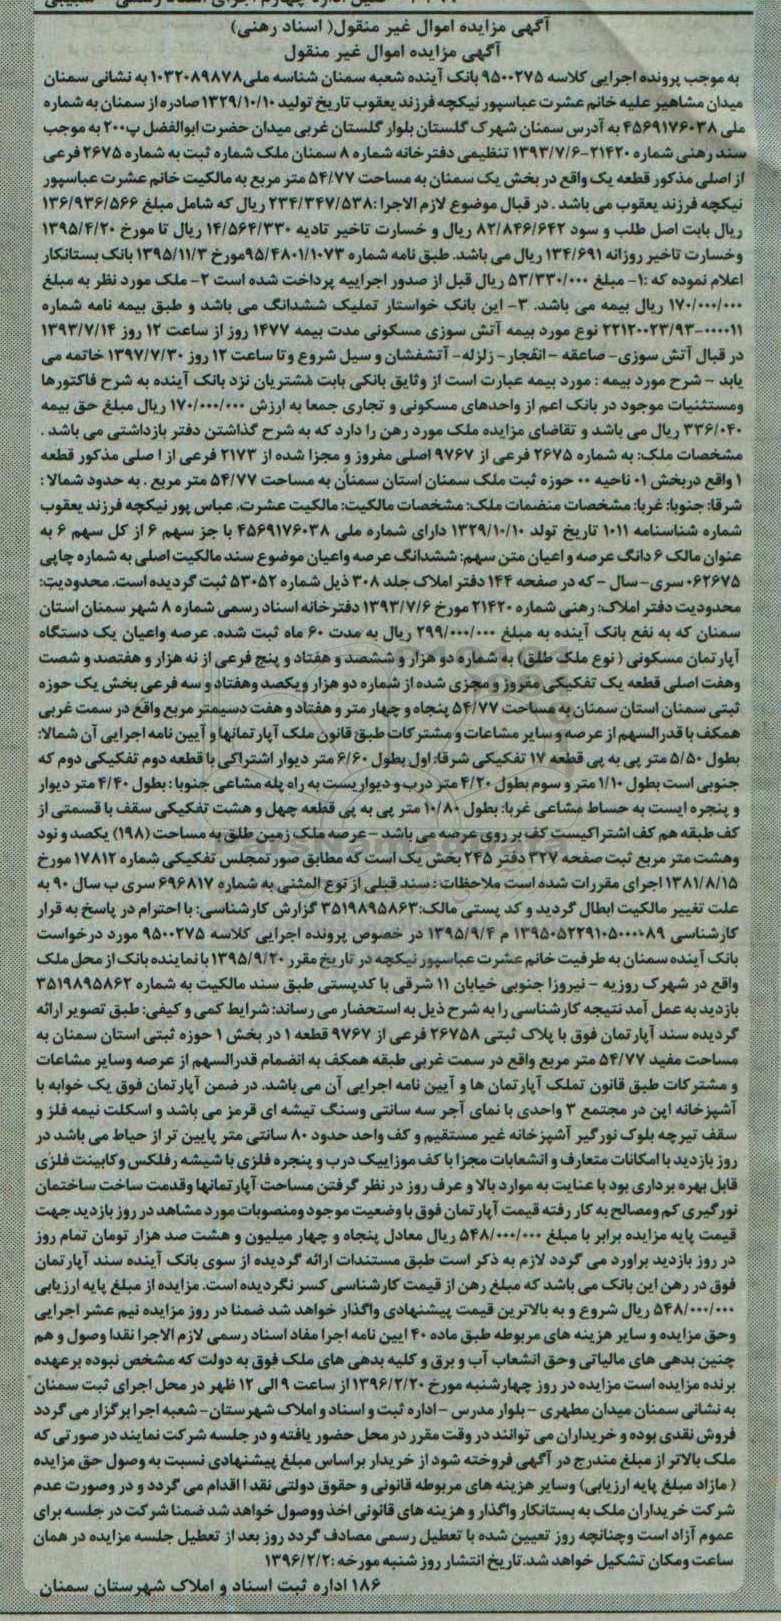 آگهی مزایده اموال غیر منقول( اسناد رهنی)
آگهی مزایده اموال غیر منقول
به موجب پرونده اجرایی کلاسه ۹۵۰۰۲۷۵ بانک آینده شعبه سمنان شناسه ملی۱۰۳۲۰۸۹۸۷۸ به نشانی سمنان
میدان مشاهیر علیه خانم عشرت عباسپور نیکچه فرزند یعقوب تاریخ تولید ۱۳۲۹/۱۰/۱۰ صادره از سمنان به شماره
ملی ۴۵۶۹۱۷۶۰۳۸ به آدرس سمنان شهرک گلستان بلوار گلستان غربی میدان حضرت ابوالفضل پ۲۰۰ به موجب
سند رهنی شماره ۲۱۴۲۰-۱۳۹۳/۷/۶ تنظیمی دفترخانه شماره ۸ سمنان ملک شماره ثبت به شماره ۲۶۷۵ فرعی
از اصلی مذکور قطعه یک واقع در بخش یک سمنان به مساحت ۵۴/۷۷ متر مربع به مالکیت خانم عشرت عباسپور
نیکچه فرزند یعقوب می باشد . در قبال موضوع لازم الاجرا :۲۳۴/۳۴۷/۵۳۸ ریال که شامل مبلغ ۱۳۶/۹۳۶/۵۶۶
ریال بابت اصل طلب و سود ۸۲/۸۴۶/۶۴۲ ریال و خسارت تاخیر تادیه ۱۴/۵۶۴/۳۳۰ ریال تا مورخ ۱۳۹۵/۴/۲۰
وخسارت تاخیر روزانه ۱۳۴/۶۹۱ ریال می باشد. طبق نامه شماره ۹۵/۴۸۰۱/۱۰۷۳مورخ ۱۳۹۵/۱۱/۳ بانک بستانکار
اعلام نموده که :۱- مبلغ ۵۳/۳۳۰/۰۰۰ ریال قبل از صدور اجراییه پرداخت شده است ۲- ملک مورد نظر به مبلغ
۱۷۰/۰۰۰/۰۰۰ ریال بیمه می باشد. ۳- این بانک خواستار تملیک ششدانگ می باشد و طبق بیمه نامه شماره
۲۲۱۲۰۰۲۳/۹۳-۰۰۰۰۱۱ نوع مورد بیمه آتش سوزی مسکونی مدت بیمه ۱۴۷۷ روز از ساعت ۱۲ روز ۱۳۹۳/۷/۱۴
در قبال آتش سوزی- صاعقه - انفجار- زلزله- آتشفشان و سیل شروع و تا ساعت ۱۲ روز ۱۳۹۷/۷/۳۰ خاتمه می
یابد - شرح مورد بیمه : مورد بیمه عبارت است از وثایق بانکی بابت مشتریان نزد بانک آینده به شرح فاکتورها
ومستثنیات موجود در بانک اعم از واحدهای مسکونی و تجاری جمعا به ارزش ۱۷۰/۰۰۰/۰۰۰ ریال مبلغ حق بیمه
۳۳۶/۰۴۰ ریال می باشد و تقاضای مزایده ملک مورد رهن را دارد که به شرح گذاشتن دفتر بازداشتی می باشد .
مشخصات ملک: به شماره ۲۶۷۵ فرعی از ۹۷۶۷ اصلی مفروز و مجزا شده از ۲۱۷۳ فرعی از ا صلی مذکور قطعه
۱ واقع دربخش ۰۱ ناحیه ۰۰ حوزه ثبت ملک سمنان استان سمنان به مساحت ۵۴/۷۷ متر مربع . به حدود شمالا :
شرقا: جنوبا: غربا: مشخصات منضمات ملک: مشخصات مالکیت: مالکیت عشرت. عباس پور نیکچه فرزند یعقوب
شماره شناسنامه ۱۰۱۱ تاریخ تولد ۱۳۲۹/۱۰/۱۰ دارای شماره ملی ۴۵۶۹۱۷۶۰۳۸ با جز سهم ۶ از کل سهم ۶ به
عنوان مالک ۶ دانگ عرصه و اعیان متن سهم: ششدانگ عرصه واعیان موضوع سند مالکیت اصلی به شماره چاپی
۰۶۲۶۷۵ سری- سال - که در صفحه ۱۴۴ دفتر املاک جلد ۳۰۸ ذیل شماره ۵۳۰۵۲ ثبت گردیده است. محدودیت:
محدودیت دفتر املاک: رهنی شماره ۲۱۴۲۰ مورخ ۱۳۹۳/۷/۶ دفترخانه اسناد رسمی شماره ۸ شهر سمنان استان
سمنان که به نفع بانک آینده به مبلغ ۲۹۹/۰۰۰/۰۰۰ ریال به مدت ۶۰ ماه ثبت شده. عرصه واعیان یک دستگاه
آپارتمان مسکونی ( نوع ملک طلق) به شماره دو هزار و ششصد و هفتاد و پنج فرعی از نه هزار و هفتصد و شصت
وهفت اصلی قطعه یک تفکیکی مفروز و مجزی شده از شماره دو هزار ویکصد وهفتاد و سه فرعی بخش یک حوزه
ثبتی سمنان استان سمنان به مساحت ۵۴/۷۷ پنجاه و چهار متر و هفتاد و هفت دسیمتر مربع واقع در سمت غربی
همکف با قدرالسهم از عرصه و سایر مشاعات و مشترکات طبق قانون ملک آپارتمانها و آیین نامه اجرایی آن شمالا:
بطول ۵/۵۰ متر پی به پی قطعه ۱۷ تفکیکی شرقا: اول بطول ۶/۶۰ متر دیوار اشتراکی با قطعه دوم تفکیکی دوم که
جنوبی است بطول ۱/۱۰ متر و سوم بطول ۴/۲۰ متر درب و دیواریست به راه پله مشاعی جنوبا : بطول ۴/۴۰ متر دیوار
و پنجره ایست به حساط مشاعی غربا: بطول ۱۰/۸۰ متر پی به پی قطعه چهل و هشت تفکیکی سقف با قسمتی از
کف طبقه هم کف اشتراکیست کف بر روی عرصه می باشد - عرصه ملک زمین طلق به مساحت (۱۹۸) یکصد و نود
وهشت متر مربع ثبت صفحه ۳۲۷ دفتر ۲۴۵ بخش یک است که مطابق صورتمجلس تفکیکی شماره ۱۷۸۱۲ مورخ
۱۳۸۱/۸/۱۵ اجرای مقررات شده است ملاحظات : سند قبلی از نوع المثنی به شماره ۶۹۶۸۱۷ سری ب سال ۹۰ به
علت تغییر مالکیت ابطال گردید و کد پستی مالک:۳۵۱۹۸۹۵۸۶۳ گزارش کارشناسی: با احترام در پاسخ به قرار
کارشناسی ۱۳۹۵۰۵۲۲۹۱۰۵۰۰۰۰۸۹ م ۱۳۹۵/۹/۴ در خصوص پرونده اجرایی کلاسه ۹۵۰۰۲۷۵ مورد درخواست
بانک آینده سمنان به طرفیت خانم عشرت عباسپور نیکچه در تاریخ مقرر ۱۳۹۵/۹/۲۰ با نماینده بانک از محل ملک
واقع در شهرک روزیه - نیروزا جنوبی خیابان ۱۱ شرقی با کدپستی طبق سند مالکیت به شماره ۳۵۱۹۸۹۵۸۶۲
بازدید به عمل آمد نتیجه کارشناسی را به شرح ذیل به استحضار می رساند: شرایط کمی و کیفی: طبق تصویر ارائه
گردیده سند آپارتمان فوق با پلاک ثبتی ۲۶۷۵۸ فرعی از ۹۷۶۷ قطعه ۱ در بخش ۱ حوزه ثبتی استان سمنان به
مساحت مفید ۵۴/۷۷ متر مربع واقع در سمت غربی طبقه همکف به انضمام قدرالسهم از عرصه وسایر مشاعات
و مشترکات طبق قانون تملک آپارتمان ها و آیین نامه اجرایی آن می باشد. در ضمن آپارتمان فوق یک خوابه با
آشپزخانه اپن در مجتمع ۳ واحدی با نمای آجر سه سانتی وسنگ تیشه ای قرمز می باشد و اسکلت نیمه فلز و
سقف تیرچه بلوک نورگیر آشپزخانه غیر مستقیم و کف واحد حدود ۸۰ سانتی متر پایین تر از حیاط می باشد در
روز بازدید با امکانات متعارف و انشعابات مجزا با کف موزاییک درب و پنجره فلزی با شیشه رفلکس و کابینت فلزی
قابل بهره برداری بود با عنایت به موارد بالا و عرف روز در نظر گرفتن مساحت آپارتمانها وقدمت ساخت ساختمان
نورگیری کم ومصالح به کار رفته قیمت آپارتمان فوق با وضعیت موجود ومنصوبات مورد مشاهد در روز بازدید جهت
قیمت پایه مزایده برابر با مبلغ ۵۴۸/۰۰۰/۰۰۰ ریال معادل پنجاه و چهار میلیون و هشت صد هزار تومان تمام روز
در روز بازدید براورد می گردد لازم به ذکر است طبق مستندات ارائه گردیده از سوی بانک آینده سند آپارتمان
فوق در رهن این بانک می باشد که مبلغ رهن از قیمت کارشناسی کسر نگردیده است. مزایده از مبلغ پایه ارزیابی
۵۴۸/۰۰۰/۰۰۰ ریال شروع و به بالاترین قیمت پیشنهادی واگذار خواهد شد ضمنا در روز مزایده نیم عشر اجرایی
وحق مزایده و سایر هزینه های مربوطه طبق ماده ۴۰ ایین نامه اجرا مفاد اسناد رسمی لازم الاجرا نقدا وصول و هم
چنین بدهی های مالیاتی وحق انشعاب آب و برق و کلیه بدهی های ملک فوق به دولت که مشخص نبوده برعهده
برنده مزایده است مزایده در روز چهارشنبه مورخ ۱۳۹۶/۲/۲۰ از ساعت ۹ الی ۱۲ ظهر در محل اجرای ثبت سمنان
به نشانی سمنان میدان مطهری - بلوار مدرس - اداره ثبت و اسناد و املاک شهرستان- شعبه اجرا برگزار می گردد
فروش نقدی بوده و خریداران می توانند در وقت مقرر در محل حضور یافته و در جلسه شرکت نمایند در صورتی که
ملک بالاتر از مبلغ مندرج در آگهی فروخته شود از خریدار براساس مبلغ پیشنهادی نسبت به وصول حق مزایده
( مازاد مبلغ پایه ارزیابی) وسایر هزینه های مربوطه قانونی و حقوق دولتی نقد ا اقدام می گردد و در وصورت عدم
شرکت خریداران ملک به بستانکار واگذار و هزینه های قانونی اخذ ووصول خواهد شد ضمنا شرکت در جلسه برای
عموم آزاد است وچنانچه روز تعیین شده با تعطیل رسمی مصادف گردد روز بعد از تعطیل جلسه مزایده در همان
ساعت ومکان تشکیل خواهد شد.تاریخ انتشار روز شنبه مورخه :۱۳۹۶/۲/۲
۱۸۶ اداره ثبت اسناد و املاک شهرستان سمنان